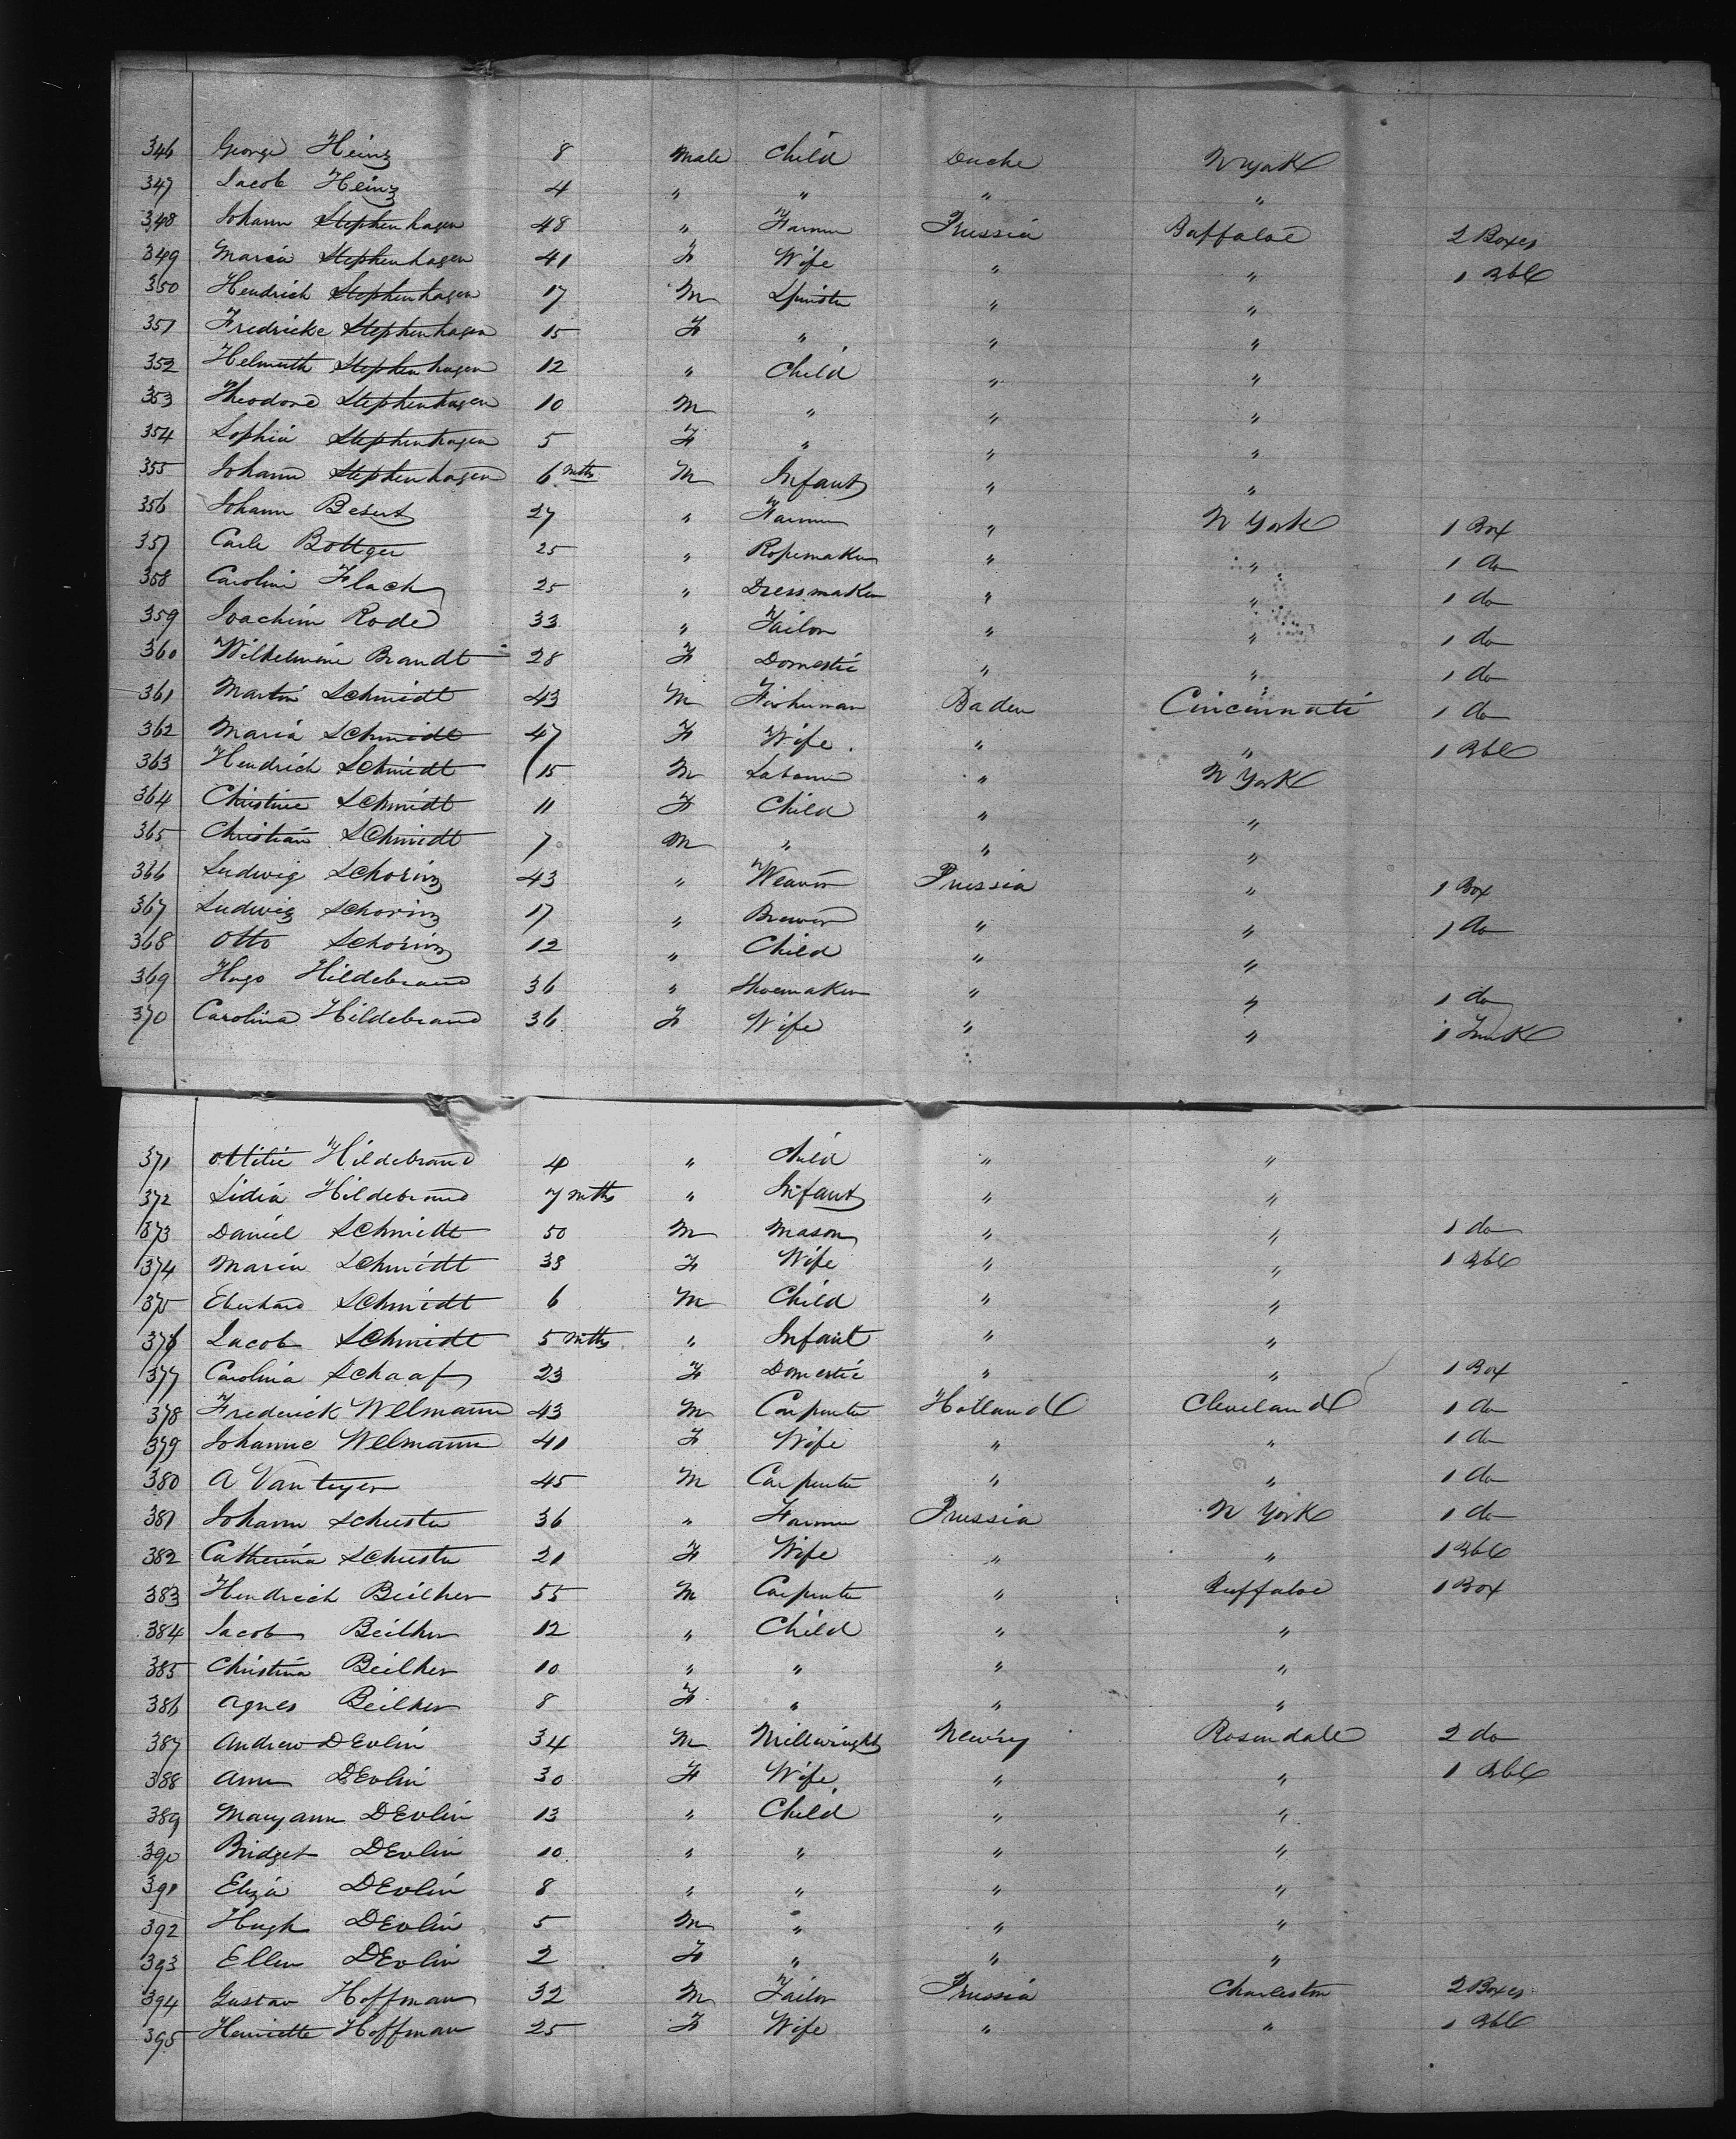 346 George Heinz 8 Male Child Duche N York
347 Jacob Heinz 4 " " " "
348 Johann Stephenhagen 48 " Farmer Prussia Buffaloe 2 Boxes
349 Maria Stephenhagen 41 F Wife " " 1 Bbl
350 Hendrich Stephenhagen 17 M Spinster " "
351 Fredricke Stephenhagen 15 F " " "
352 Helmuth Stephenhagen 12 " Child " "
353 Theodore Stephenhagen 10 M " " "
354 Sophia Stephenhagen 5 F " " "
355 Johann Stephenhagen 6 mths M Infant " "
356 Johann Besert 27 " Farmer " N York 1 Box
357 Carle Bottger 25 " Ropemaker " " 1 do
358 Carolini Flach 25 " Dressmaker " " 1 do
359 Joachim Rode 33 " Tailor " " 1 do
360 Wilhelmine Brandt 28 F Domestic " " 1 do
361 Martin Schmidt 43 M Fisherman Baden Cincinnati 1 do
362 Maria Schmidt 47 F Wife " " 1 Bbl
363 Hendrich Schmidt 15 M Labourer " N York
364 Christine Schmidt 11 F Child " "
365 Christian Schmidt 7 M " " "
366 Ludwig Schorinz 43 " Weaver Prussia " 1 Box
367 Ludwig Schorinz 17 " Brewer " " 1 do
368 Otto Schorinz 12 " Child " "
369 Hugo Hildebrand 36 " Shoemaker " " 1 do
370 Carolina Hildebrand 36 F Wife " " 1 Trunk
371 Ottilie Hildebrand 4 " Child " "
372 Lidia Hildebrand 7 mths " Infant " "
373 Daniel Schmidt 50 M Mason " " 1 do
374 Maria Schmidt 38 F Wife " " 1 Bbl
375 Eberhard Schmidt 6 M Child " "
376 Jacob Schmidt 5 mths " Infant " "
377 Carolina Schaaf 23 F Domestic " " 1 Box
378 Frederick Welmann 43 M Carpenter Holland Cleveland 1 do
379 Johanne Welmann 41 F Wife " " 1 do
380 A Vantuyer 45 M Carpenter " " 1 do
381 Johann Schuster 36 " Farmer Prussia N York 1 do
382 Catherina Schuster 21 F Wife " " 1 Bbl
383 Hendrich Beilher 55 M Carpenter " Buffaloe 1 Box
384 Jacob Beilher 12 " Child " "
385 Christina Beilher 10 " " " "
386 Agnes Beilher 8 F " " "
387 Andrew DEvlin 34 M Millwright Newry Rosendale 2 do
388 Ann DEvlin 30 F Wife " " 1 Bbl
389 Maryann DEvlin 13 " Child " "
390 Bridget DEvlin 10 " " " "
391 Eliza DEvlin 8 " " " "
392 Hugh DEvlin 5 M " " "
393 Ellen DEvlin 2 F " " "
394 Gustav Hoffman 32 M Tailor Prussia Charleston 2 Boxes
395 Henriette Hoffman 25 F Wife " " 1 Bbl